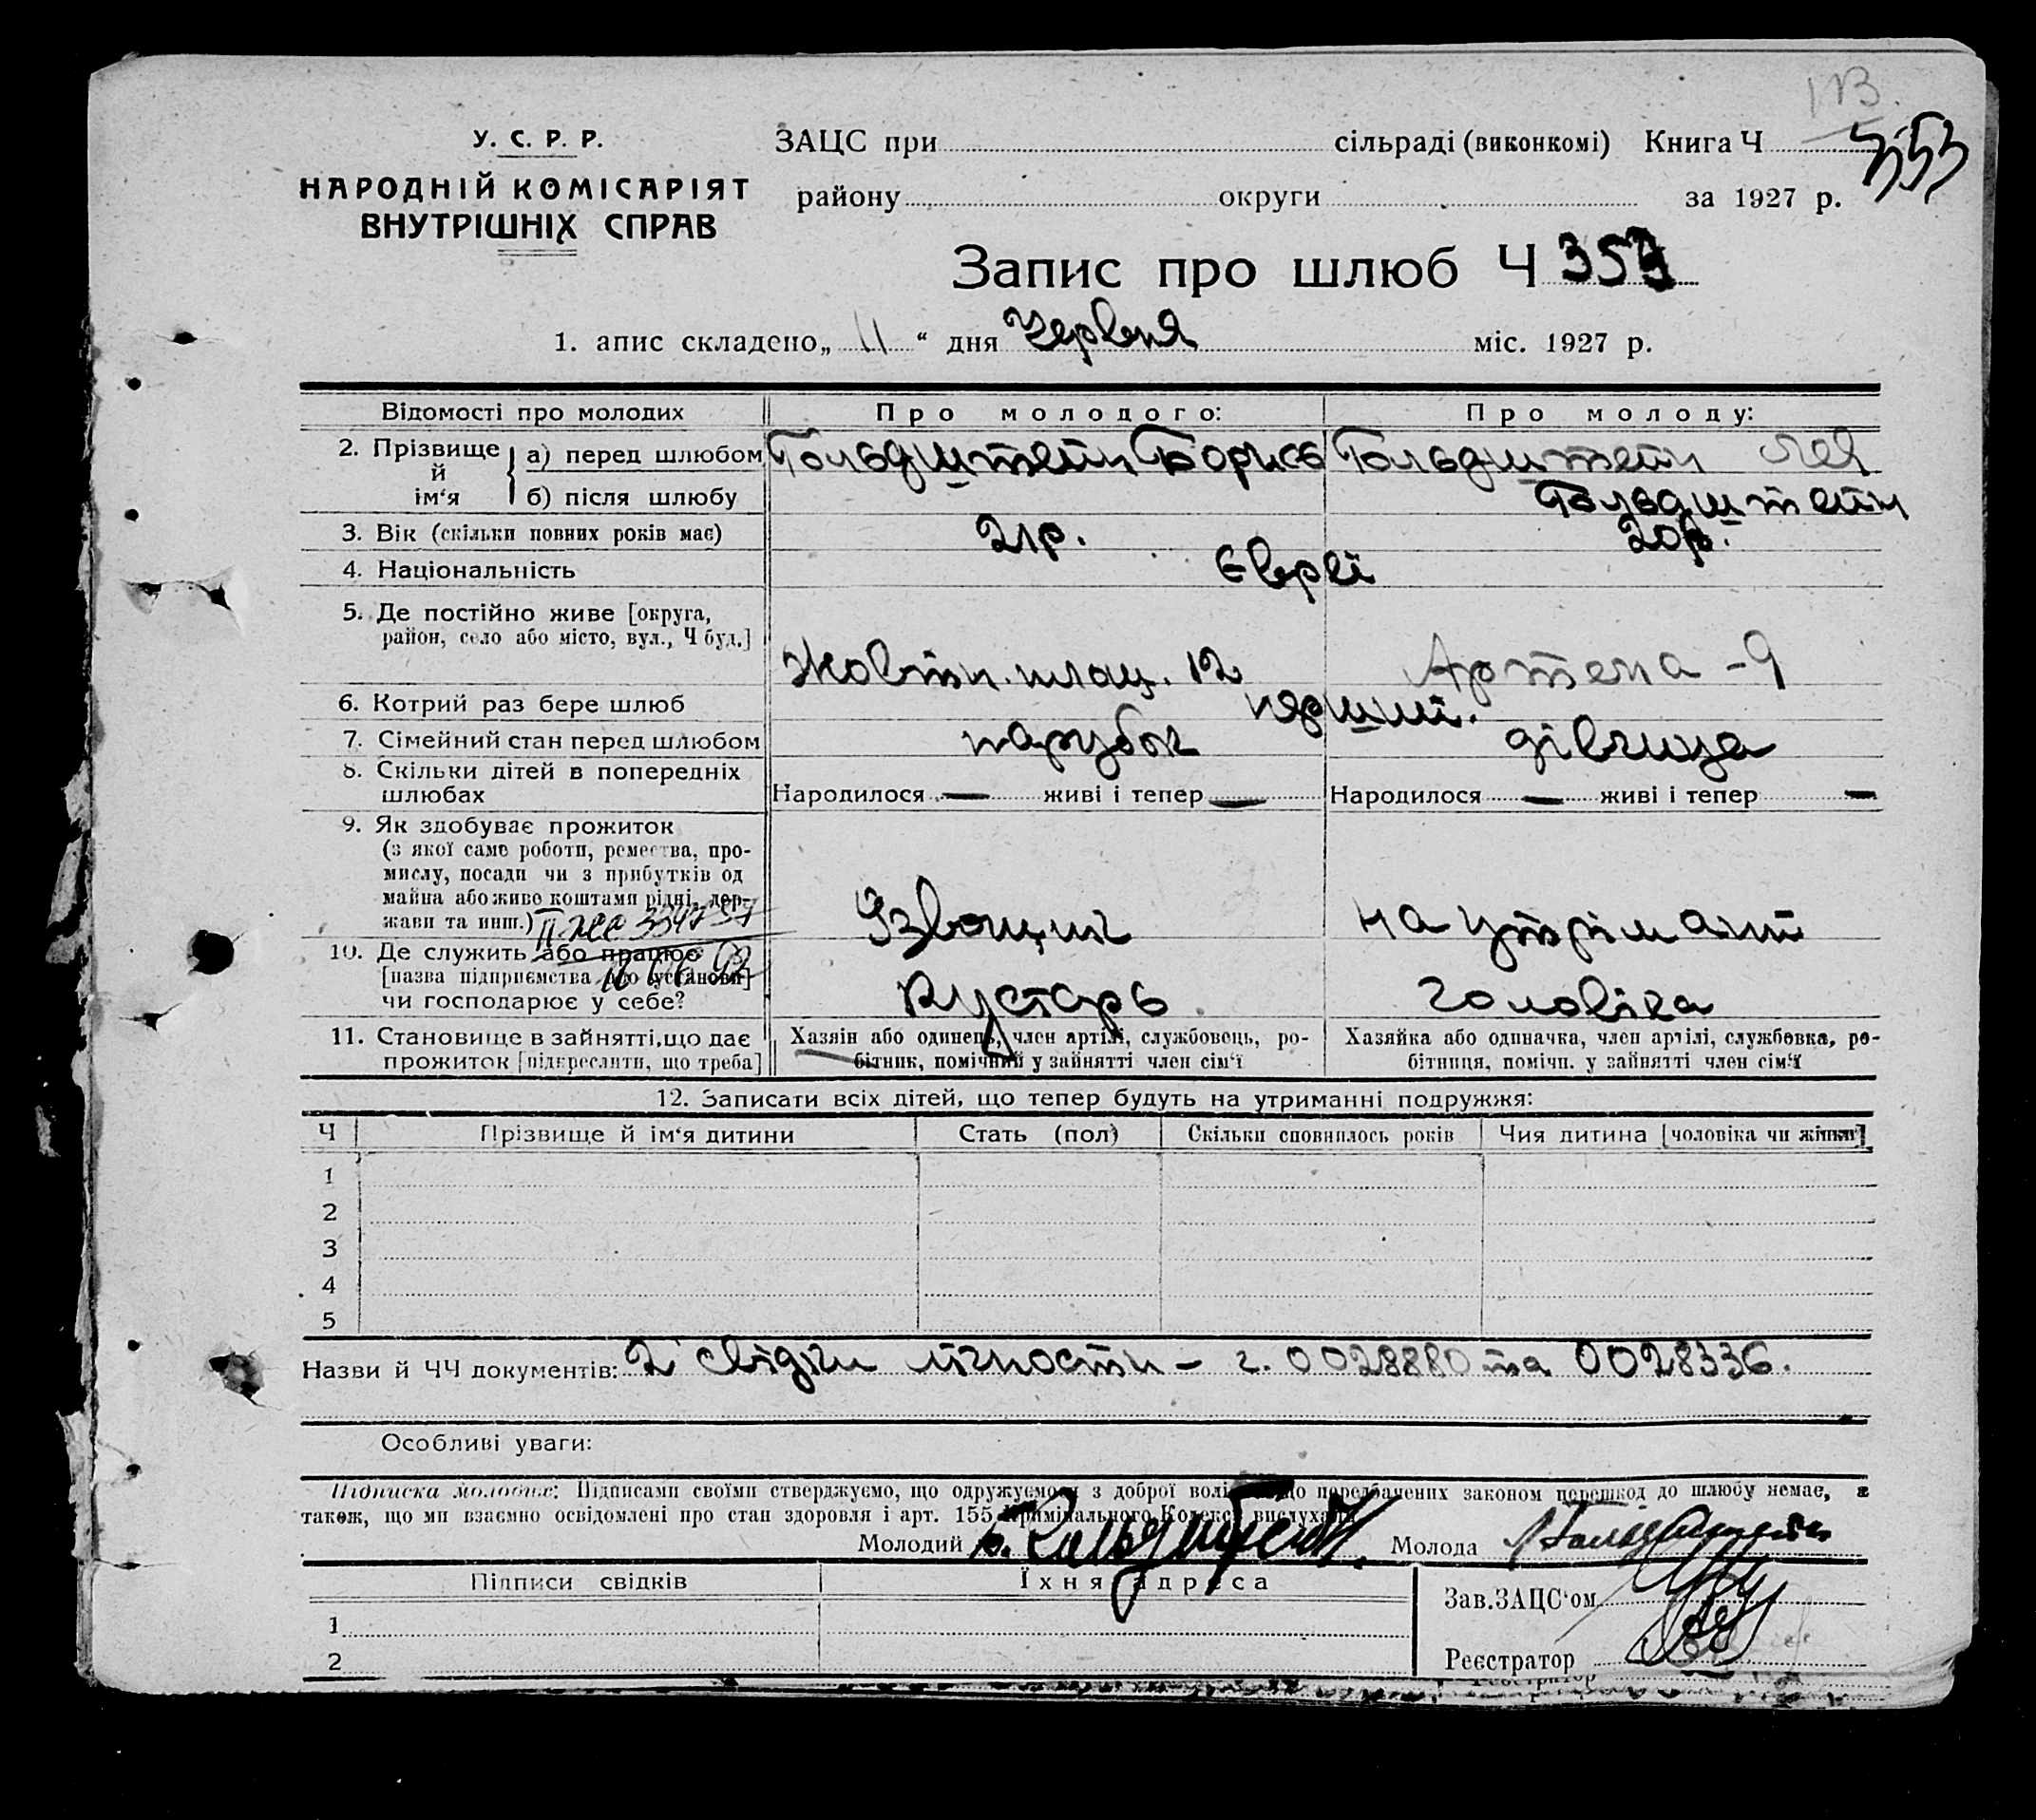 113.
У. С. Р. Р.
НАРОДНІЙ КОМІСАРІЯТ
ВНУТРІШНІХ СПРАВ
ЗАЦС при сільраді (виконкомі) Книга Ч 353
району округи за 1927 р.
Запис про шлюб Ч 353
1. апис складено „ 11 “ дня Червня міс. 1927 р.
Відомості про молодих Про молодого: Про молоду:
2. Прізвище й ім‘я
а) перед шлюбом Гольдштейн Борис Гольдштейн Лея
б) після шлюбу Гольдштейн
3. Вік (скільки повних років має) 21р. 20р.
4. Національність Євреї
5. Де постійно живе [округа,
район, село або місто, вул., Ч буд.] Жовтн. площ. 12 Артема - 9
6. Котрий раз бере шлюб перший.
7. Сімейний стан перед шлюбом парубок дівчина
8. Скільки дітей в попередніх
шлюбах Народилося — живі і тепер — Народилося — живі і тепер —
9. Як здобуває прожиток
(з якої саме роботи, ремества, про-
мислу, посади чи з прибутків од
майна або живе коштами рідні, дер-
жави та инш.) Ізвощик на утріманні
10. Де служить або працює
[назва підприємства або установи]
чи господарює у себе? Кустарь чоловіка
11. Становище в зайнятті, що дає
прожиток [підкреслити, що треба]
Хазяїн або одинець, член артілі, службовець, ро-
бітник, помічний у зайнятті член сім‘ї
Хазяйка або одиначка, член артілі, службовка, ро-
бітниця, помічн. у зайнятті член сім‘ї
12. Записати всіх дітей, що тепер будуть на утриманні подружжя:
Ч Прізвище й ім‘я дитини Стать (пол) Скільки сповнилось років Чия дитина [чоловіка чи жінки]
1
2
3
4
5
Назви й ЧЧ документів: 2 свідки лічности - ч. 0028880 та 0028336.
Особливі уваги:
Підписка молодих: Підписами своїми стверджуємо, що одружуємося з доброї волі що передбачених законом перешкод до шлюбу немає, а
також, що ми взаємно освідомлені про стан здоровля і арт. 155 Кримінального Кодексу вислухали
Молодий Б. Гольдштейн. Молода Л Гольдштейн
Підписи свідків Їхня адреса
Зав. ЗАЦС‘ом
1
Реєстратор
2